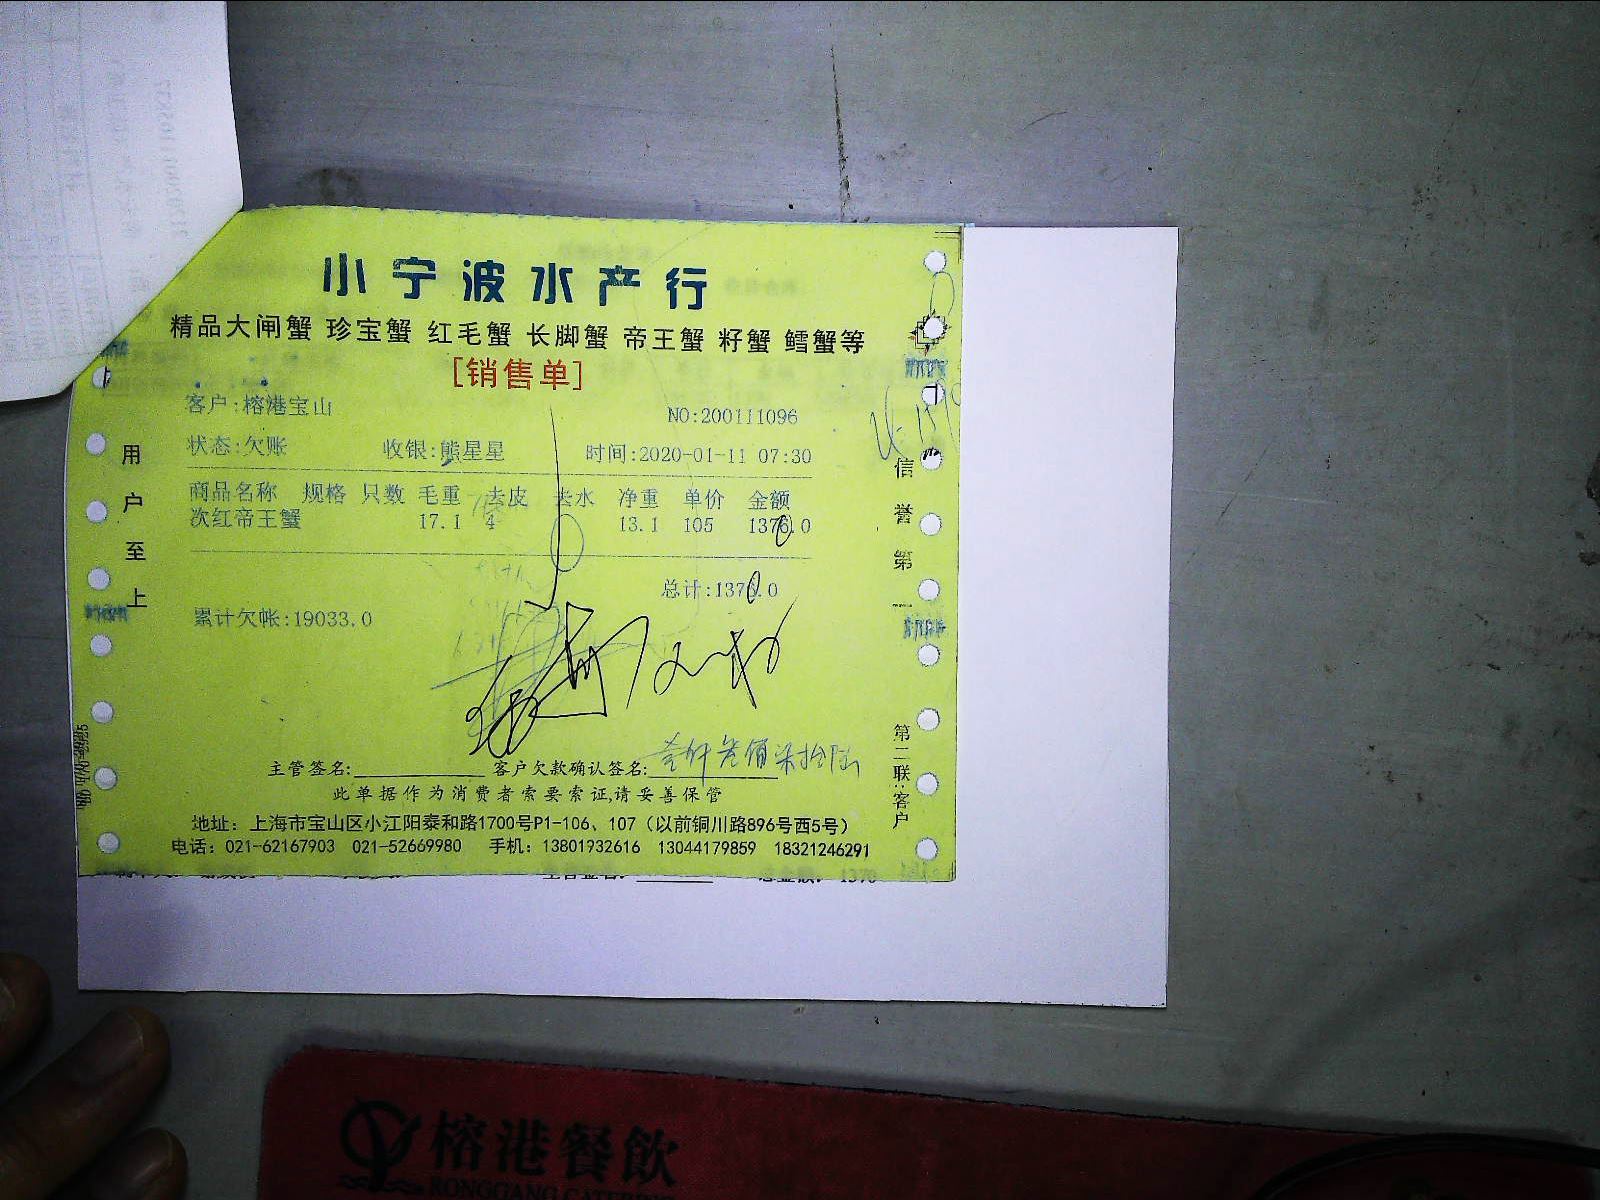 小宁波水产行
精品大闸蟹 珍宝蟹 红毛蟹 长脚蟹 帝王蟹 籽蟹 鳕蟹等
[销售单]
客户:榕港宝山 NO:200111096
状态:欠账 收银:熊星星 时间:2020-01-11 07:30
商品名称 规格 只数 毛重 去皮 去水 净重 单价 金额
次红帝王蟹 17.1 4 13.1 105 1376.0
总计:1376.0
累计欠帐:19033.0
用户至上
信誉第一
第二联:客户
壹仟叁佰柒拾陆
主管签名: 客户欠款确认签名:
此单据作为消费者索要索证,请妥善保管
地址：上海市宝山区小江阳泰和路1700号P1-106、107（以前铜川路896号西5号）
电话：021-62167903 021-52669980 手机：13801932616 13044179859 18321246291
1370
榕港餐飲
RONGGANG CATERING